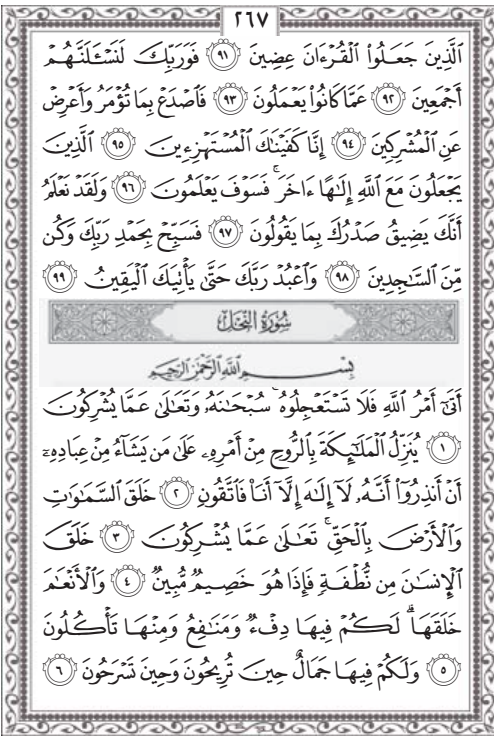 ٢٦٧
ٱلَّذِينَ جَعَلُوا۟ ٱلْقُرْءَانَ عِضِينَ ٩١ فَوَرَبِّكَ لَنَسْـَٔلَنَّهُمْ
أَجْمَعِينَ ٩٢ عَمَّا كَانُوا۟ يَعْمَلُونَ ٩٣ فَٱصْدَعْ بِمَا تُؤْمَرُ وَأَعْرِضْ
عَنِ ٱلْمُشْرِكِينَ ٩٤ إِنَّا كَفَيْنَٰكَ ٱلْمُسْتَهْزِءِينَ ٩٥ ٱلَّذِينَ
يَجْعَلُونَ مَعَ ٱللَّهِ إِلَٰهًا ءَاخَرَ ۚ فَسَوْفَ يَعْلَمُونَ ٩٦ وَلَقَدْ نَعْلَمُ
أَنَّكَ يَضِيقُ صَدْرُكَ بِمَا يَقُولُونَ ٩٧ فَسَبِّحْ بِحَمْدِ رَبِّكَ وَكُن
مِّنَ ٱلسَّٰجِدِينَ ٩٨ وَٱعْبُدْ رَبَّكَ حَتَّىٰ يَأْتِيَكَ ٱلْيَقِينُ ٩٩
سُورَةُ النَّحْلِ
بِسْمِ ٱللَّهِ ٱلرَّحْمَٰنِ ٱلرَّحِيمِ
أَتَىٰٓ أَمْرُ ٱللَّهِ فَلَا تَسْتَعْجِلُوهُ ۚ سُبْحَٰنَهُۥ وَتَعَٰلَىٰ عَمَّا يُشْرِكُونَ
١ يُنَزِّلُ ٱلْمَلَٰٓئِكَةَ بِٱلرُّوحِ مِنْ أَمْرِهِۦ عَلَىٰ مَن يَشَآءُ مِنْ عِبَادِهِۦٓ
أَنْ أَنذِرُوٓا۟ أَنَّهُۥ لَآ إِلَٰهَ إِلَّآ أَنَا۠ فَٱتَّقُونِ ٢ خَلَقَ ٱلسَّمَٰوَٰتِ
وَٱلْأَرْضَ بِٱلْحَقِّ ۚ تَعَٰلَىٰ عَمَّا يُشْرِكُونَ ٣ خَلَقَ
ٱلْإِنسَٰنَ مِن نُّطْفَةٍ فَإِذَا هُوَ خَصِيمٌ مُّبِينٌ ٤ وَٱلْأَنْعَٰمَ
خَلَقَهَا ۗ لَكُمْ فِيهَا دِفْءٌ وَمَنَٰفِعُ وَمِنْهَا تَأْكُلُونَ
٥ وَلَكُمْ فِيهَا جَمَالٌ حِينَ تُرِيحُونَ وَحِينَ تَسْرَحُونَ ٦